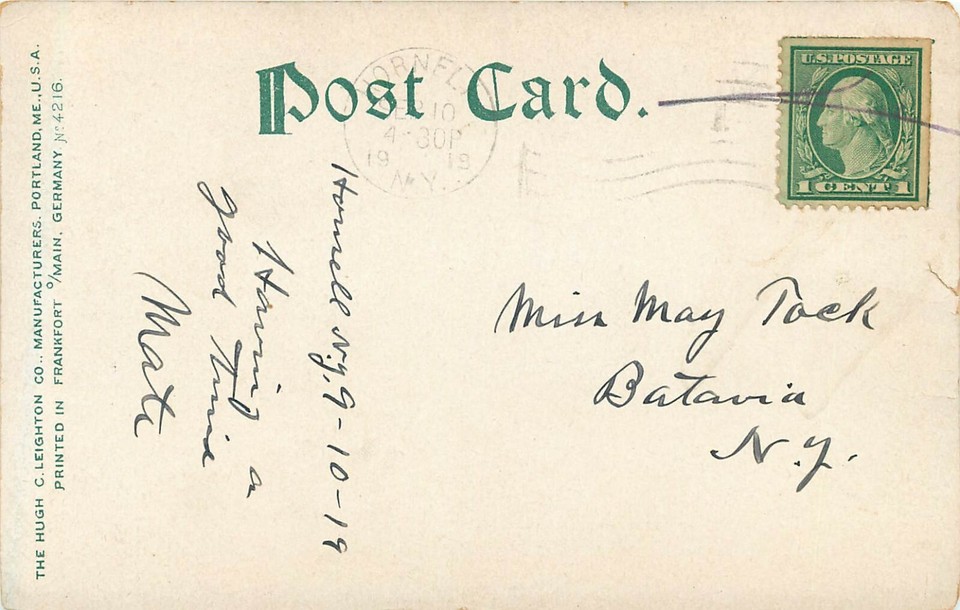 Post Card.
HORNELL
SEP 10
4-30P
1919
N.Y.
U.S. POSTAGE
1 CENT 1
Hornell N.Y. 9-10-19
Having a
good time
Mate
Miss May Tock
Batavia
N.Y.
THE HUGH C. LEIGHTON CO., MANUFACTURERS, PORTLAND, ME., U.S.A.
PRINTED IN FRANKFORT o/MAIN, GERMANY No 4216.